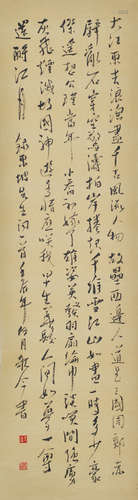 大江東去浪淘盡千古風流人物故壘西邊人道是三國周郎赤
壁亂石穿空驚濤拍岸捲起千堆雪江山如畫一時多少豪
傑遙想公瑾當年小喬初嫁了雄姿英發羽扇綸巾談笑間强虜
灰飛煙滅故國神遊多情應笑我早生華髮人間如夢一尊
還酹江月 東坡先生詞 年 月 書